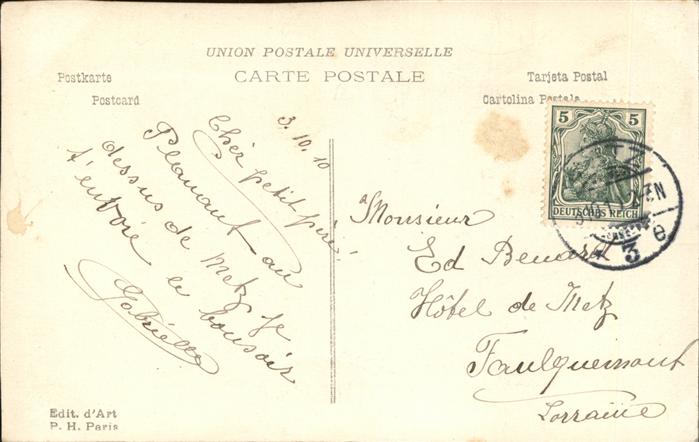 UNION POSTALE UNIVERSELLE
CARTE POSTALE
Postkarte
Postcard
Tarjeta Postal
Cartolina Postale
3.10.10
Cher petit père!
au
dessus de Metz je
t'envoie le bonsoir
Gabrielle
5 5
DEUTSCHES REICH
3 e
Monsieur
Ed
Hôtel de Metz
Faulquemont
Lorraine
Edit. d'Art
P. H. Paris